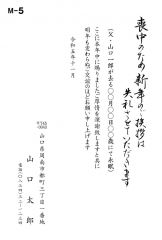 M-5
喪中のため新年の挨拶は
失礼させていただきます
(父・山口一郎が去る〇〇月〇〇日〇〇歳にて永眠)
ここに本年中に賜りましたご厚情を深謝致しますと共に
明年も変わらぬご交誼のほどお願い申し上げます
令和五年十一月
〒745
-0043
山口県周南市都町三丁目一番地
山口太郎